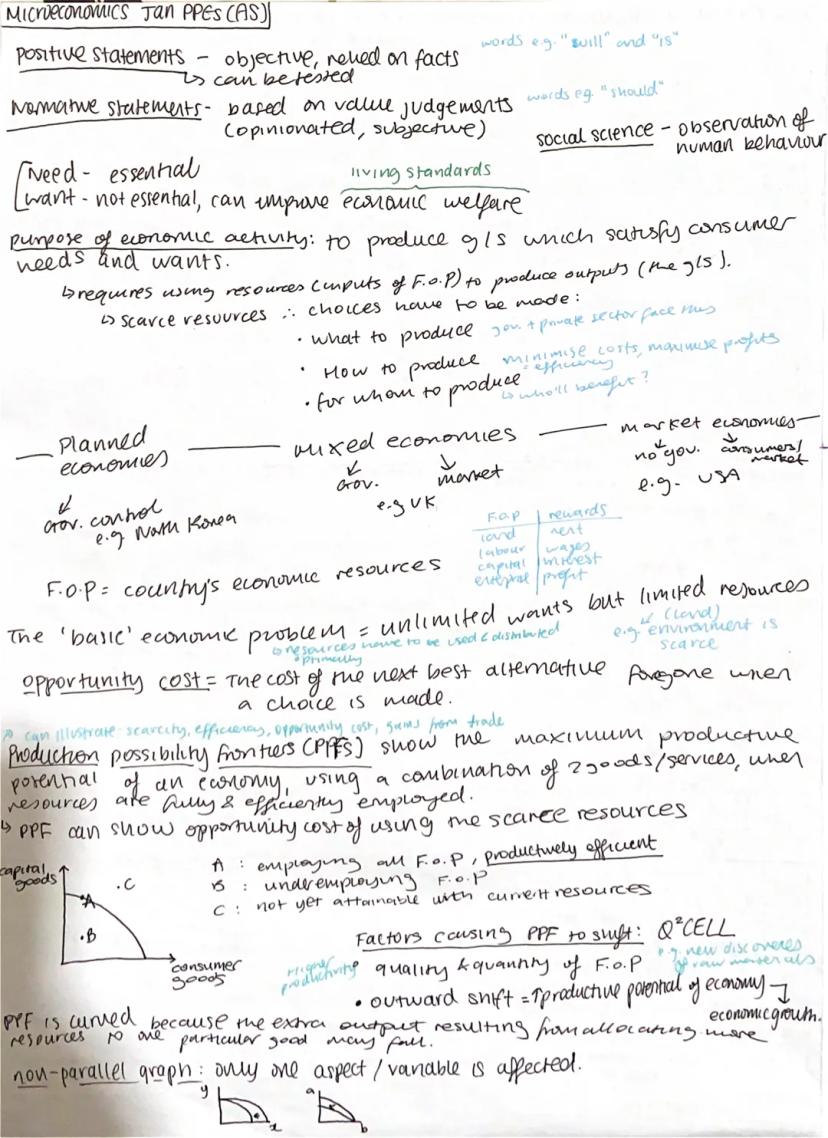 Microeconomics Jan PPEs (AS)
Positive statements - objective, relied on facts
words e.g. "will" and "is"
↳ can be tested
Normative statements - based on value judgements
words eg. "should"
(opinionated, subjective)
social science - observation of
human behaviour
Need - essential
living standards
want - not essential, can improve economic welfare
Purpose of economic activity: to produce g/s which satisfy consumer
needs and wants.
↳ requires using resources (inputs of F.o.P) to produce outputs (the g/s).
↳ scarce resources ∴ choices have to be made:
• what to produce gov. + private sector face this
• How to produce minimise costs, maximise profits
= efficiency
• for whom to produce
↳ who'll benefit?
Planned
economies
mixed economies
market economies
Gov.
market
no gov.
consumers/
market
e.g UK
e.g. USA
Gov. control
e.g North Korea
F.O.P rewards
land rent
labour wages
capital interest
profit
F.O.P = country's economic resources
The 'basic' economic problem = unlimited wants but limited resources
↳ resources have to be used & distributed
optimally
(land)
e.g. environment is
scarce
Opportunity cost = The cost of the next best alternative foregone when
a choice is made.
↗ can illustrate scarcity, efficiency, opportunity cost, gains from trade
Production possibility frontiers (PPFs) show the maximum productive
potential of an economy, using a combination of 2 goods/services, when
resources are fully & efficiently employed.
↳ PPF can show opportunity cost of using the scarce resources
capital
goods
A
B
C
consumer
goods
A : employing all F.o.P, productively efficient
B : underemploying F.o.P
C : not yet attainable with current resources
Factors causing PPF to shift: Q²CELL
e.g. new discoveries
of raw materials
Higher
productivity
quality & quantity of F.o.P
• outward shift = ↑productive potential of economy
economic growth.
PPF is curved because the extra output resulting from allocating more
resources to one particular good may fall.
non-parallel graph: only one aspect / variable is affected.
y
x
a
b